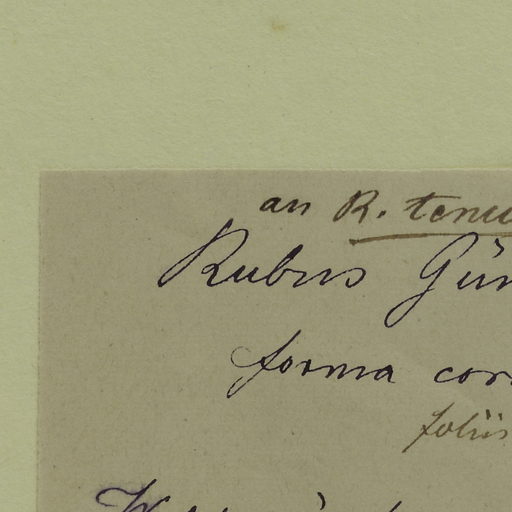 an R. tenu
Rubus Gün
forma cor
foliis